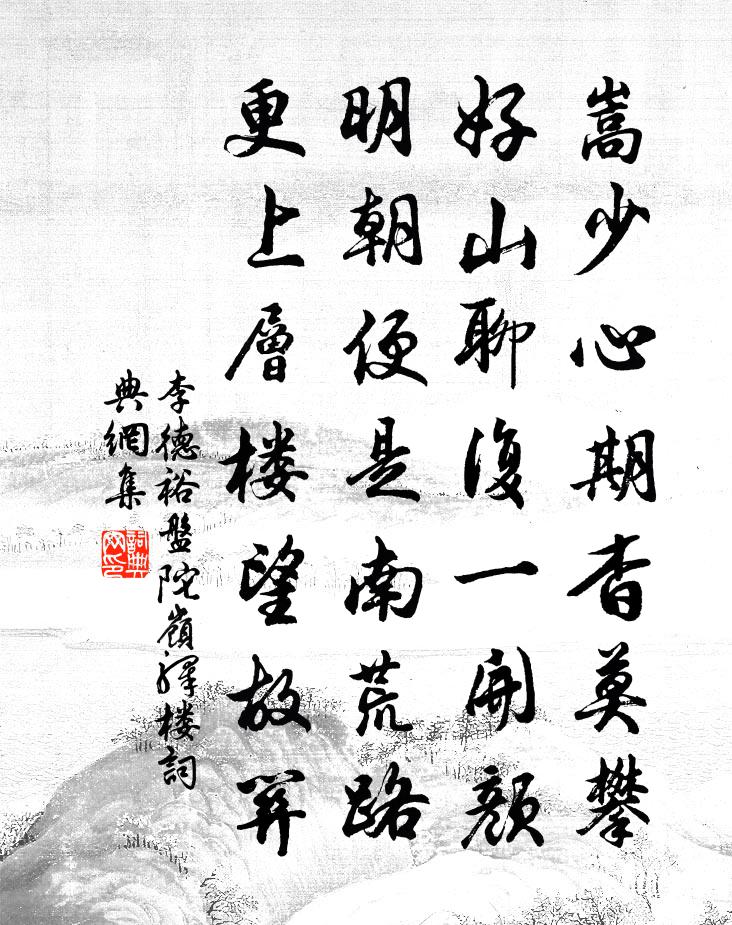 嵩少心期杳莫攀
好山聊復一開顏
明朝便是南荒路
更上層楼望故関
李德裕盤陀嶺驛楼詞
典網集
詞典
网印